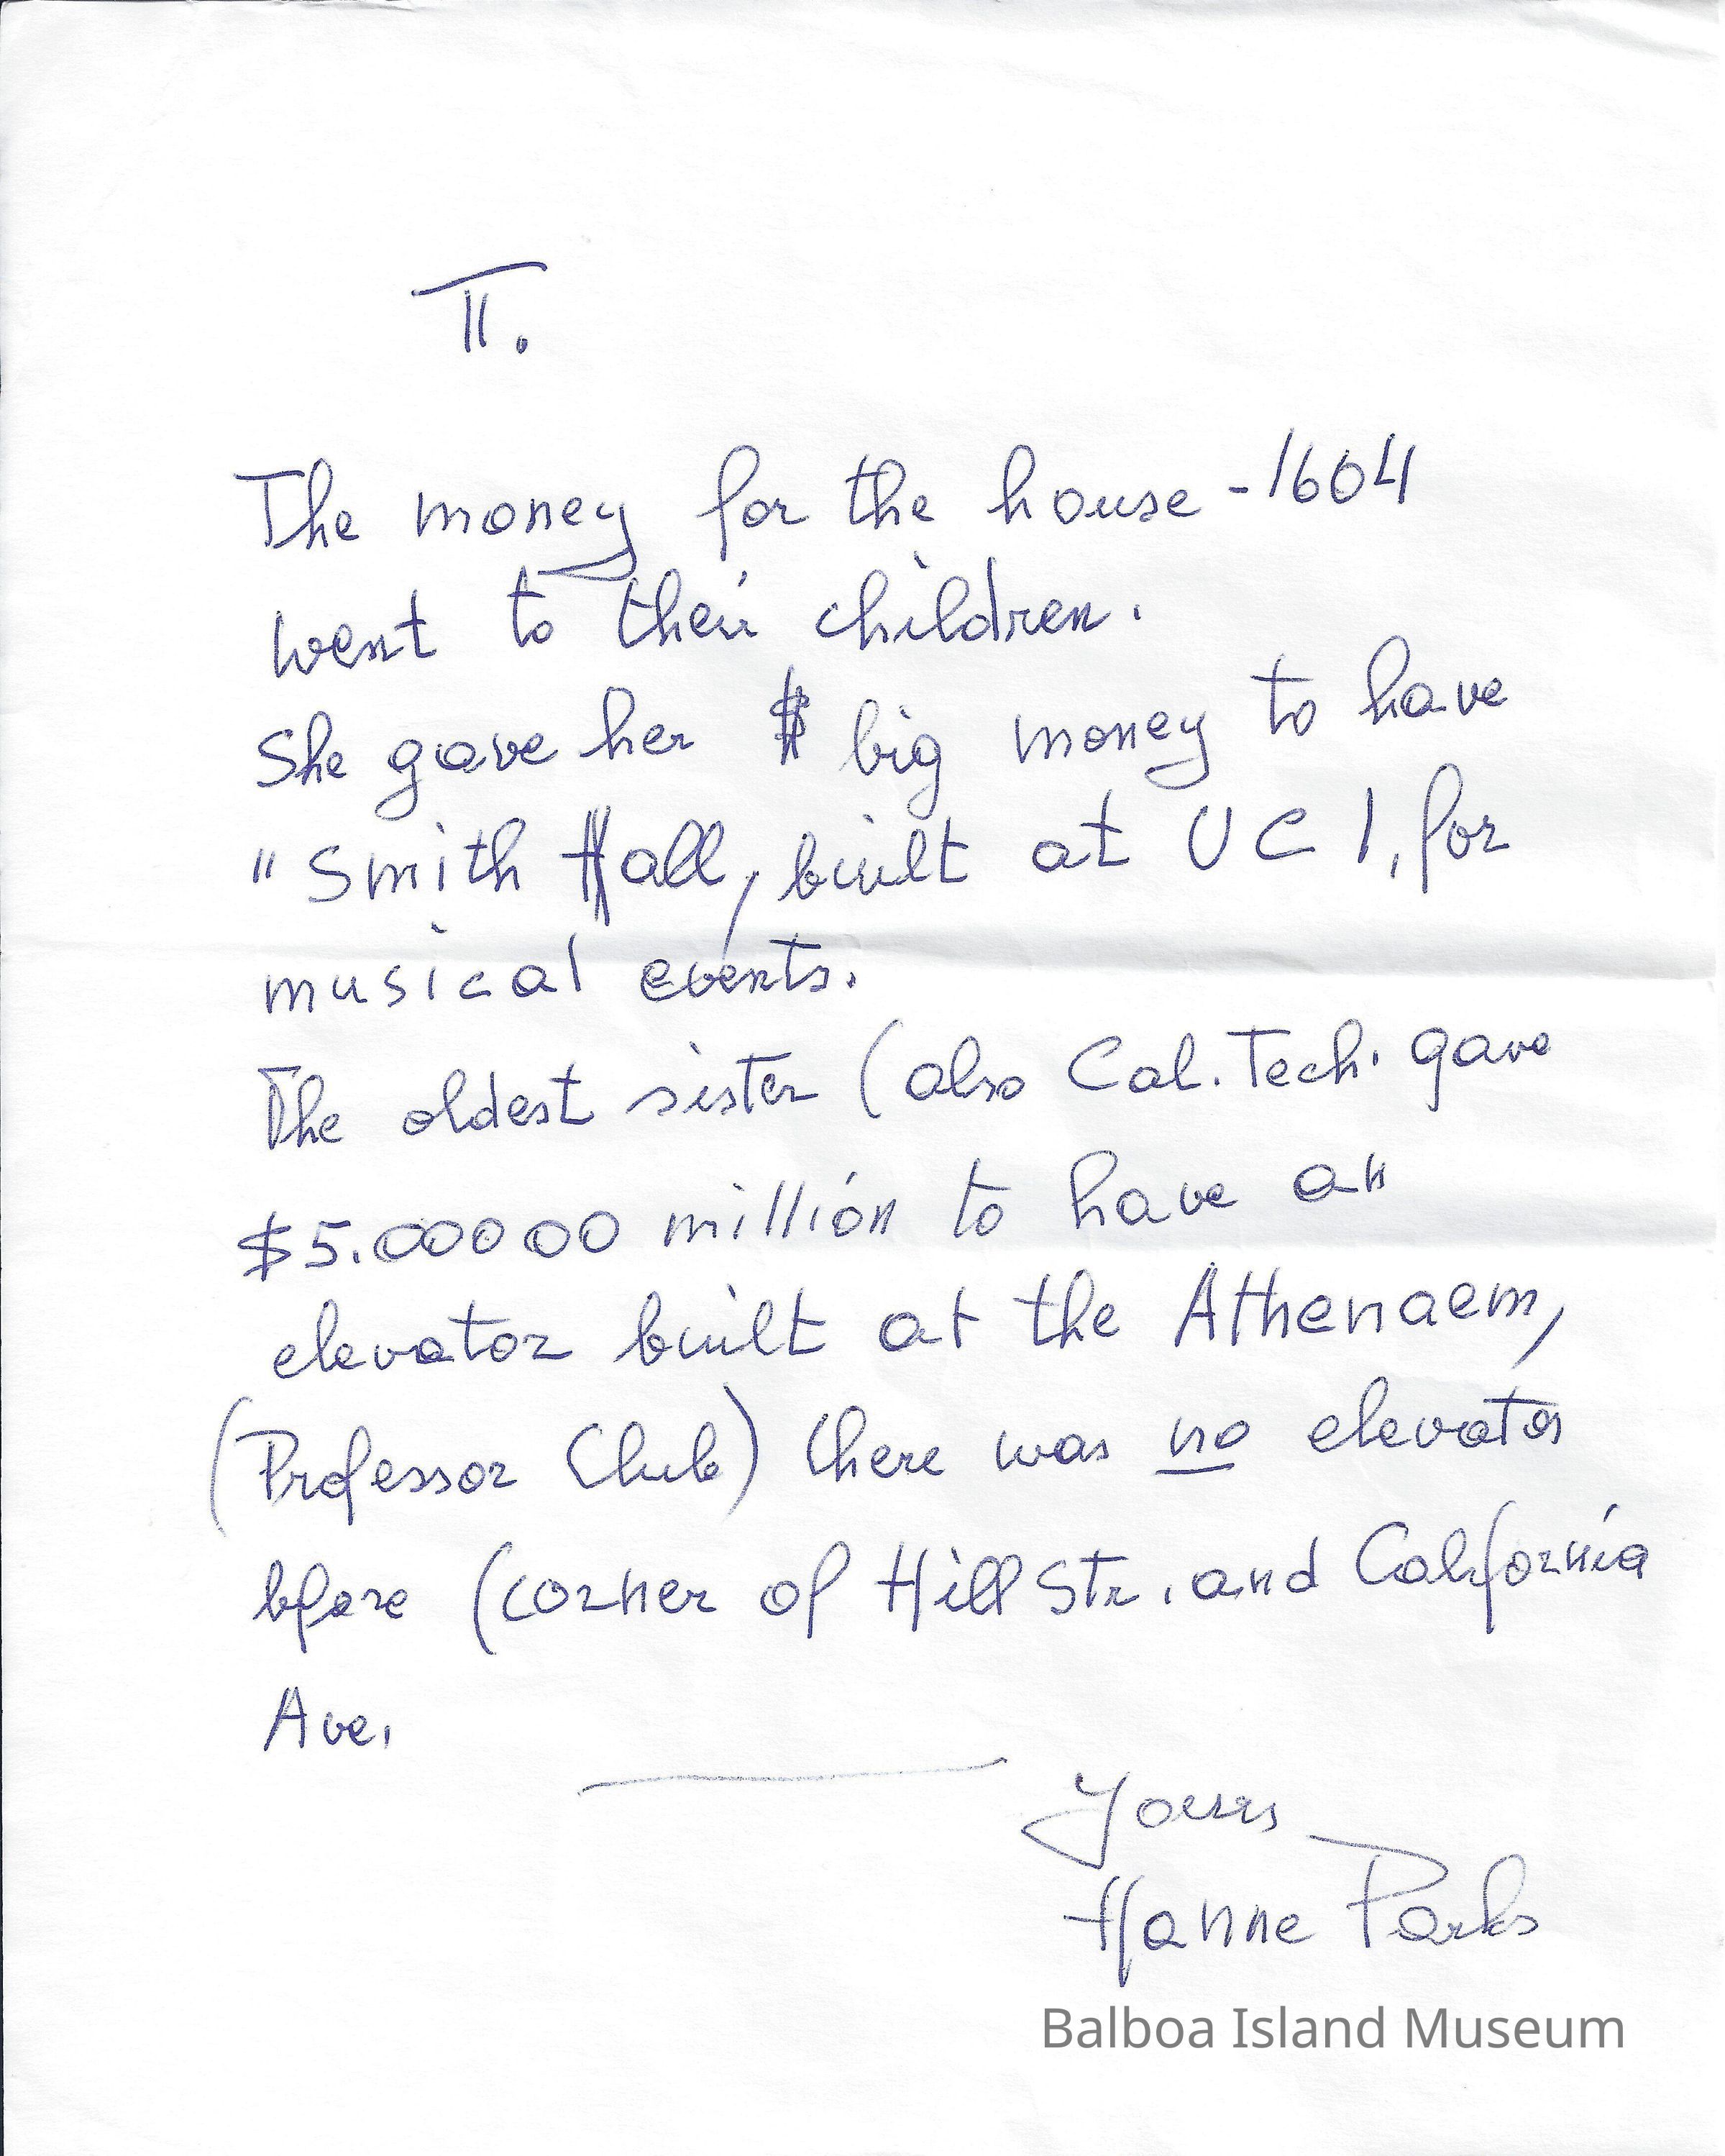 II.
The money for the house - 1604
went to their children.
She gave her $ big money to have
"Smith Hall, built at UCI, for
musical events.
The oldest sister (also Cal. Tech. gave
$5.00000 million to have an
elevator built at the Athenaem,
(Professor Club) there was no elevator
bfore (corner of Hill Str. and California
Ave.
Yours
Hanne Parks
Balboa Island Museum